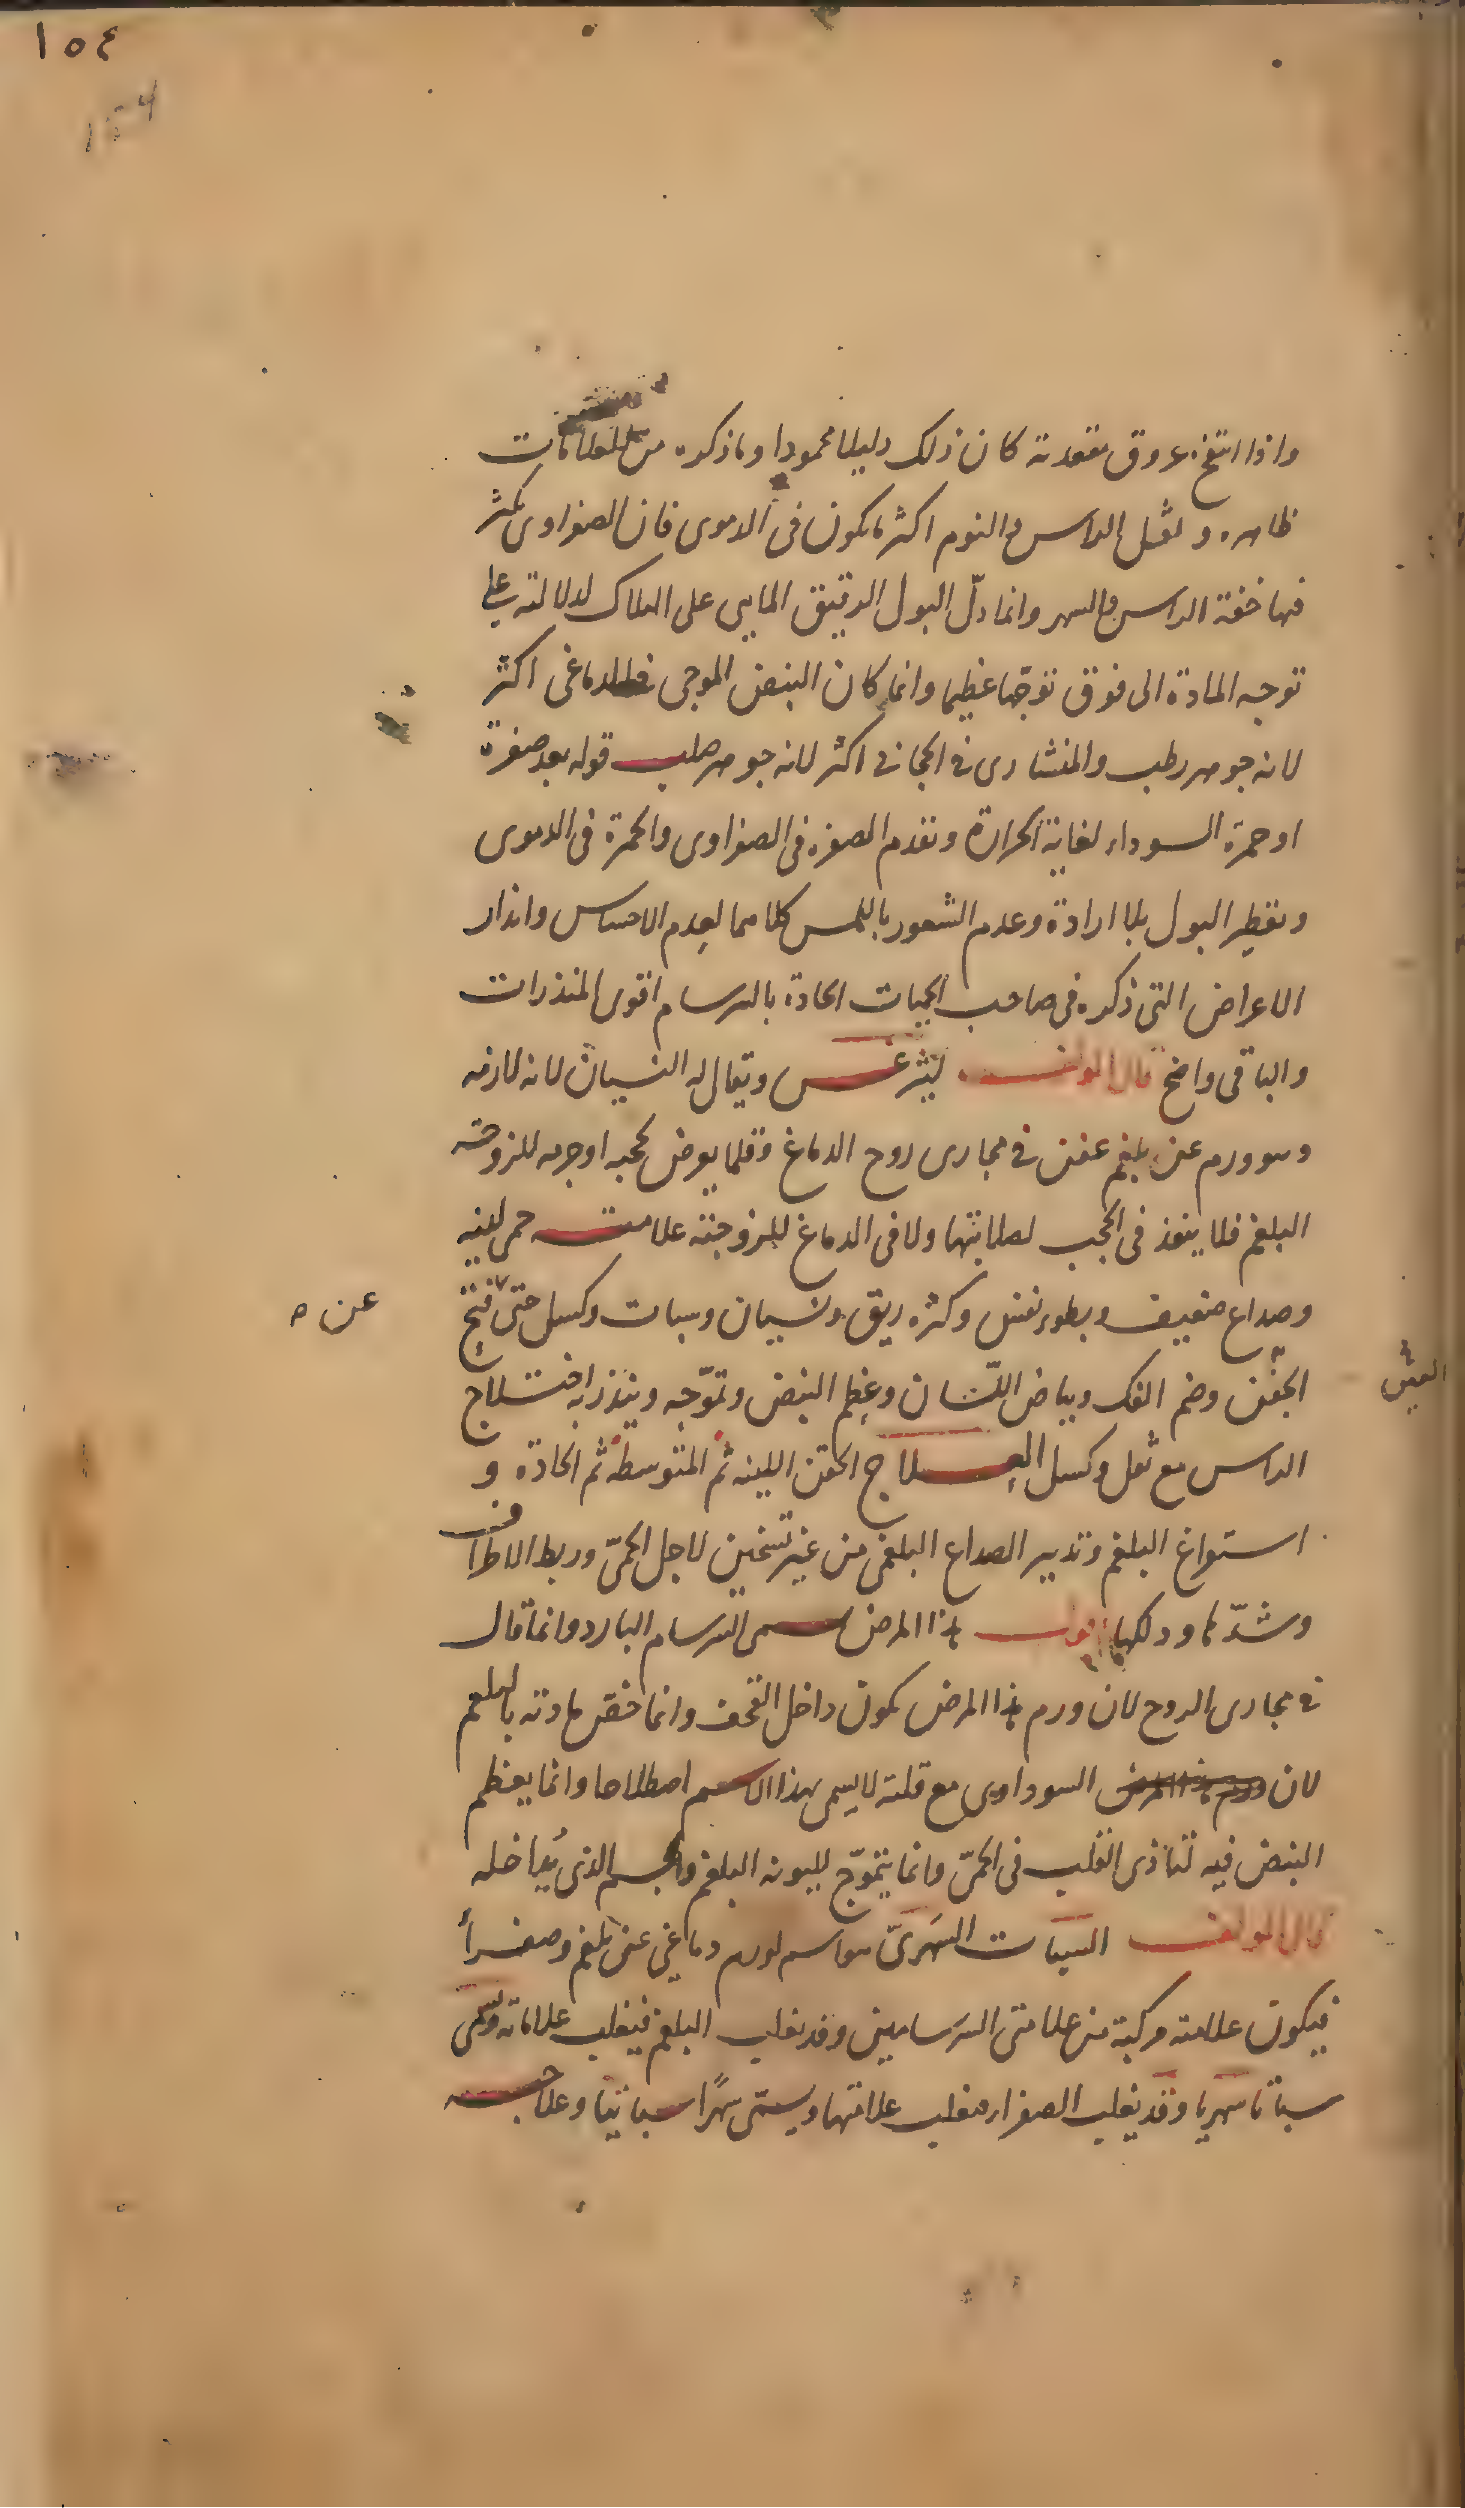 ١٥٤
154
واذا انتفخ عروق مقعدته كان ذلك دليلا محمودا وما ذكره من العلامات
ظاهره وثقل الراس والنوم اكثر ما يكون فى الدموى فان الصفراوى يكثر
فيها خفة الراس والسهر وانما دلّ البول الرقيق المايى على الهلاك لدلالته على
توجه المادة الى فوق توجّها عظيما وانما كان النبض الموجى فى الدماغى اكثر
لانه جوهر رطب والمنشارى فى الحجابى اكثر لانه جوهر صلب قوله بعد صفرة
او حمرة السوداء لغاية الحرارة وتقدم الصفره فى الصفراوى والحمرة فى الدموى
وتقطير البول بلا ارادة وعدم الشعور باللمس كلاهما لعدم الاحساس وانذار
الاعراض التى ذكره فى صاحب الحميات الحادة بالسرسام اقوى المنذرات
والباقى واضح قال المولف ليثرغس ويقال له النسيان لانه لازمه
وهو ورم عن بلغم عفن فى مجارى روح الدماغ وقلما يعرض لحجبه او جرمه للزوجة
البلغم فلا ينفذ فى الحجب لصلابتها ولا فى الدماغ للزوجته علامته حمى لينه
وصداع ضعيف وبطوء نفس وكثره ريق ونسيان وسبات وكسل حتى فتح
عن ه
الجفن وضم الفك وبياض اللسان وعظم النبض وتموّجه وينذر به اختلاج
الراس مع ثقل وكسل العلاج الحقن اللينه ثم المتوسطة ثم الحادة و
استفراغ البلغم وتدبير الصداع البلغمى من غير تسخين لاجل الحمىّ وربط الاطراف
وشدّها ودلكها اقول هذا المرض يسمى السرسام البارد وانما قال
فى مجارى الروح لان ورم هذا المرض يكون داخل القحف وانما خصّ مادته بالبلغم
لان السوداوى مع قلته لا يسمى بهذا الاسم اصطلاحا وانما يعظم
النبض فيه لتاذى القلب فى الحمىّ وانما يتموّج لليونه البلغم والجسم الذى يُداخله
قال المولف السبات السهرىّ هو اسم لورم دماغى عن بلغم وصفراء
فيكون علامته مركبة من علامتى السرسامين وقد يغلب البلغم فيغلب علاماته ويسمى
سباتا سهريا وقد يغلب الصفراء فيغلب علامتها ويسمّى سهرًا سباتيا وعلاجه